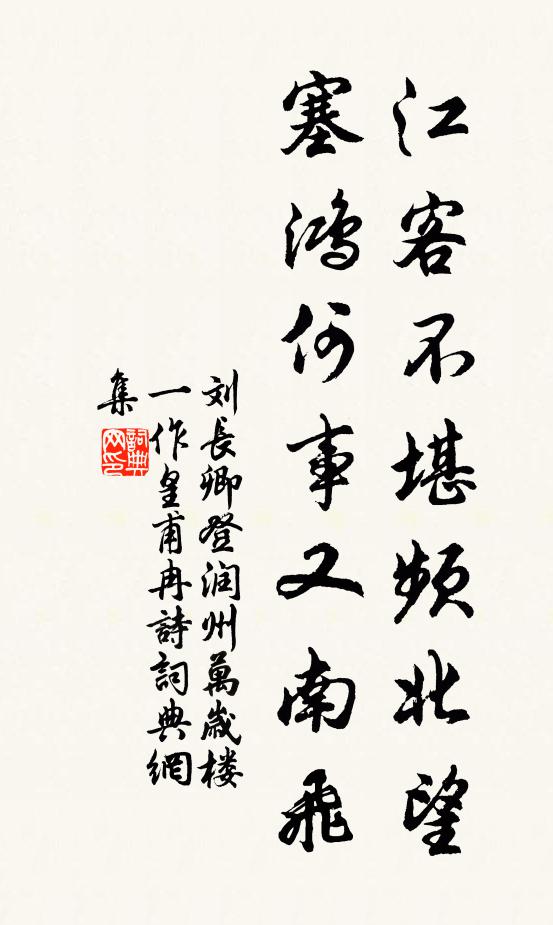 江客不堪頻北望
塞鴻何事又南飛
刘長卿登润州萬歲楼
一作皇甫冉詩詞典網
集
詞典
网印